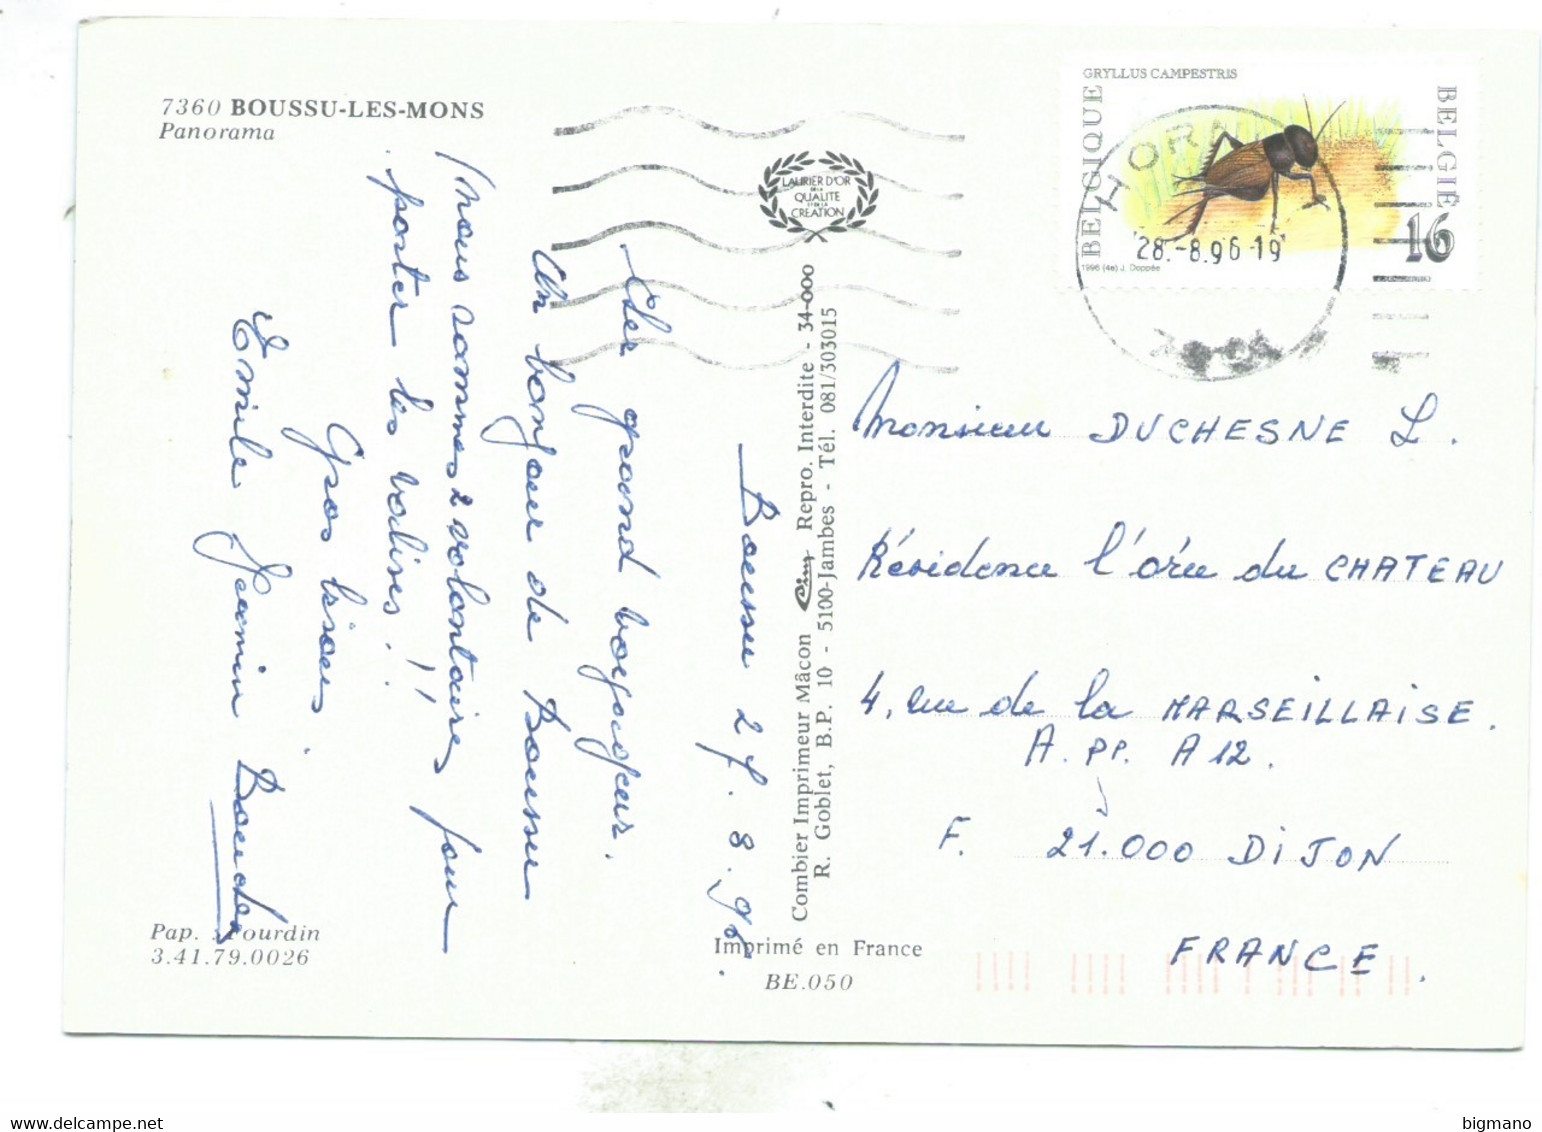 7360 BOUSSU-LES-MONS
Panorama
GRYLLUS CAMPESTRIS
BELGIQUE
BELGIË
16
1996 (4e) J. Doppée
HORNU
28.-8.96-19
LAURIER D'OR
DE LA
QUALITE
ET DE LA
CREATION
Boussu 27.8.96.
Cher grand voyageur.
Un bonjour de Boussu
(nous sommes 2 volontaires pour
porter les valises..!!
Gros bisous.
Emile Jeanine
Combier Imprimeur Mâcon Cim Repro. Interdite - 34-000
R. Goblet, B.P. 10 - 5100-Jambes - Tél. 081/303015
Monsieur DUCHESNE L.
Résidence l'orée du CHATEAU
4, rue de la MARSEILLAISE.
A.PP. A12.
F. 21.000 DIJON
FRANCE.
Pap. : Fourdin
3.41.79.0026
Imprimé en France
BE.050
bigmano